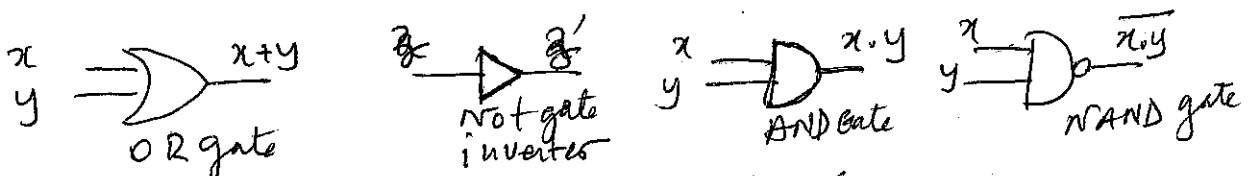 x
y
x+y
OR gate
z
z'
Not gate
inverter
x
y
x.y
AND Gate
x
y
\overline{x.y}
NAND gate